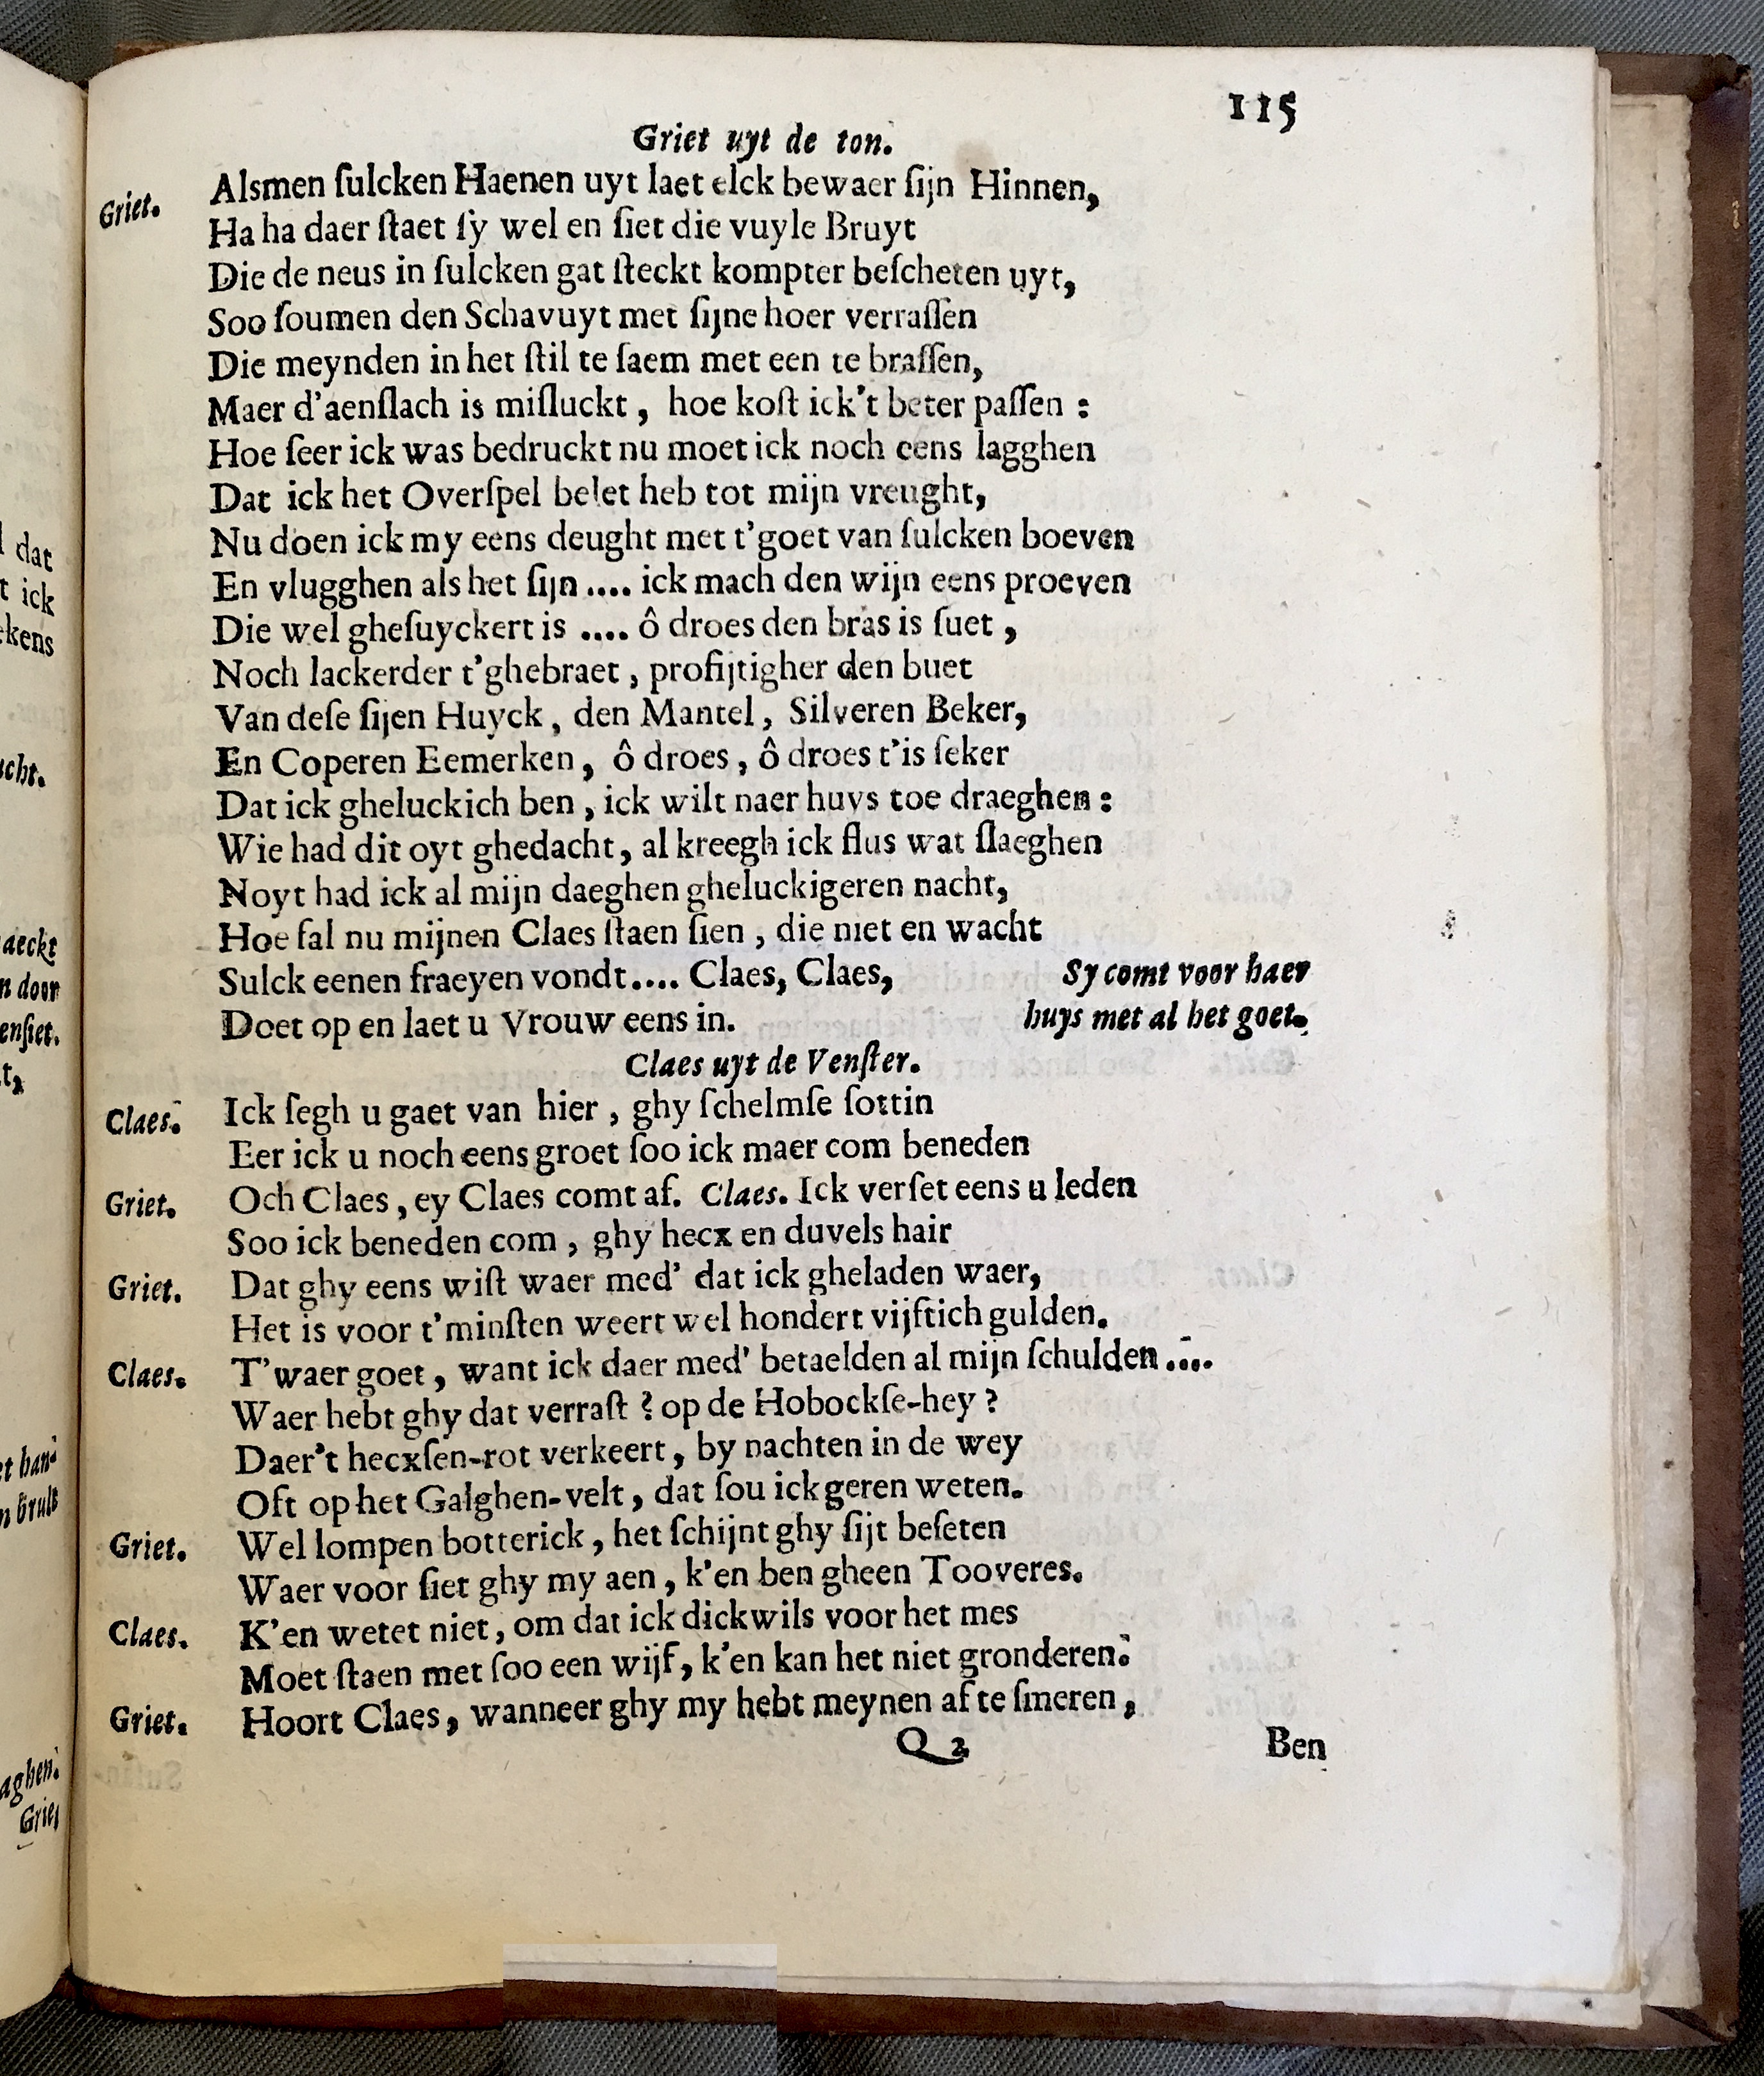 115
Griet uyt de ton.
Griet. Alsmen ſulcken Haenen uyt laet elck bewaer ſijn Hinnen,
Ha ha daer ſtaet ſy wel en ſiet die vuyle Bruyt
Die de neus in ſulcken gat ſteckt kompter beſcheten uyt,
Soo ſoumen den Schavuyt met ſijne hoer verraſſen
Die meynden in het ſtil te ſaem met een te braſſen,
Maer d'aenſlach is miſluckt, hoe koſt ick't beter paſſen:
Hoe ſeer ick was bedruckt nu moet ick noch eens lagghen
Dat ick het Overſpel belet heb tot mijn vreught,
Nu doen ick my eens deught met t'goet van ſulcken boeven
En vlugghen als het ſijn .... ick mach den wijn eens proeven
Die wel gheſuyckert is .... ô droes den bras is ſuet,
Noch lackerder t'ghebraet, profijtigher den buet
Van deſe ſijen Huyck, den Mantel, Silveren Beker,
En Coperen Eemerken, ô droes, ô droes t'is ſeker
Dat ick gheluckich ben, ick wilt naer huys toe draeghen:
Wie had dit oyt ghedacht, al kreegh ick flus wat ſlaeghen
Noyt had ick al mijn daeghen gheluckigeren nacht,
Hoe ſal nu mijnen Claes ſtaen ſien, die niet en wacht
Sulck eenen fraeyen vondt.... Claes, Claes, Sy comt voor haer
Doet op en laet u Vrouw eens in. huys met al het goet.
Claes uyt de Venſter.
Claes. Ick ſegh u gaet van hier, ghy ſchelmſe ſottin
Eer ick u noch eens groet ſoo ick maer com beneden
Griet. Och Claes, ey Claes comt af. Claes. Ick verſet eens u leden
Soo ick beneden com, ghy hecx en duvels hair
Griet. Dat ghy eens wiſt waer med' dat ick gheladen waer,
Het is voor t'minſten weert wel hondert vijftich gulden.
Claes. T'waer goet, want ick daer med' betaelden al mijn ſchulden....
Waer hebt ghy dat verraſt? op de Hobockſe-hey?
Daer't hecxſen-rot verkeert, by nachten in de wey
Oft op het Galghen-velt, dat ſou ick geren weten.
Griet. Wel lompen botterick, het ſchijnt ghy ſijt beſeten
Waer voor ſiet ghy my aen, k'en ben gheen Tooveres.
Claes. K'en wetet niet, om dat ick dickwils voor het mes
Moet ſtaen met ſoo een wijf, k'en kan het niet gronderen.
Griet. Hoort Claes, wanneer ghy my hebt meynen af te ſmeren,
Q 2 Ben